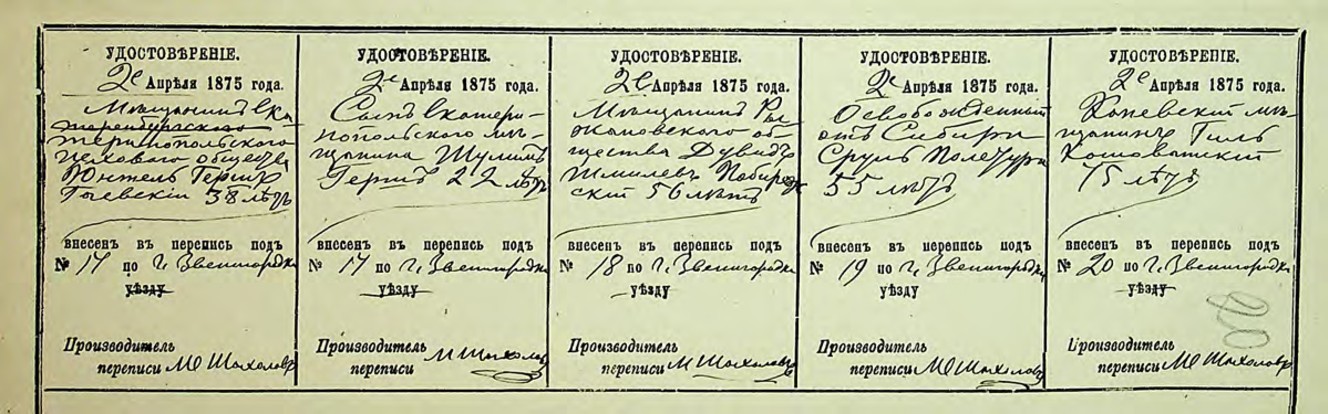 УДОСТОВѢРЕНІЕ.
2е Апрѣля 1875 года.
Мѣщанинъ Ека-
теринбургскаго
теринопольскаго
Цеховаго общества
Юнтель Гершк
38 лѣтъ
внесенъ въ перепись подъ
№ 17 по г. Звенигородкѣ
уѣзду
Производитель
переписи М Шахаловъ
УДОСТОВѢРЕНІЕ.
2е Апрѣля 1875 года.
Сынъ Екатери-
нопольского мѣ-
щанина Шулимъ
Герш 22 лѣтъ
внесенъ въ перепись подъ
№ 17 по г. Звенигородкѣ
уѣзду
Производитель
переписи М Шахалов
УДОСТОВѢРЕНІЕ.
2е Апрѣля 1875 года.
Мѣщанинъ Ры
жановского об
щества Дувидъ
Шмилевъ Побереж
скій 56 лѣтъ
внесенъ въ перепись подъ
№ 18 по г. Звенигородкѣ
уѣзду
Производитель
переписи М Шахаловъ
УДОСТОВѢРЕНІЕ.
2е Апрѣля 1875 года.
Освобожденный
отъ Сибири
Сруль Полещук
55 лѣтъ
внесенъ въ перепись подъ
№ 19 по г. Звенигородкѣ
уѣзду
Производитель
переписи М Шахаловъ
УДОСТОВѢРЕНІЕ.
2е Апрѣля 1875 года.
Каневскій мѣ-
щанинъ Гиль
Кошоватскій
75 лѣтъ
внесенъ въ перепись подъ
№ 20 по г. Звенигородкѣ
уѣзду
Производитель
переписи М Шахаловъ